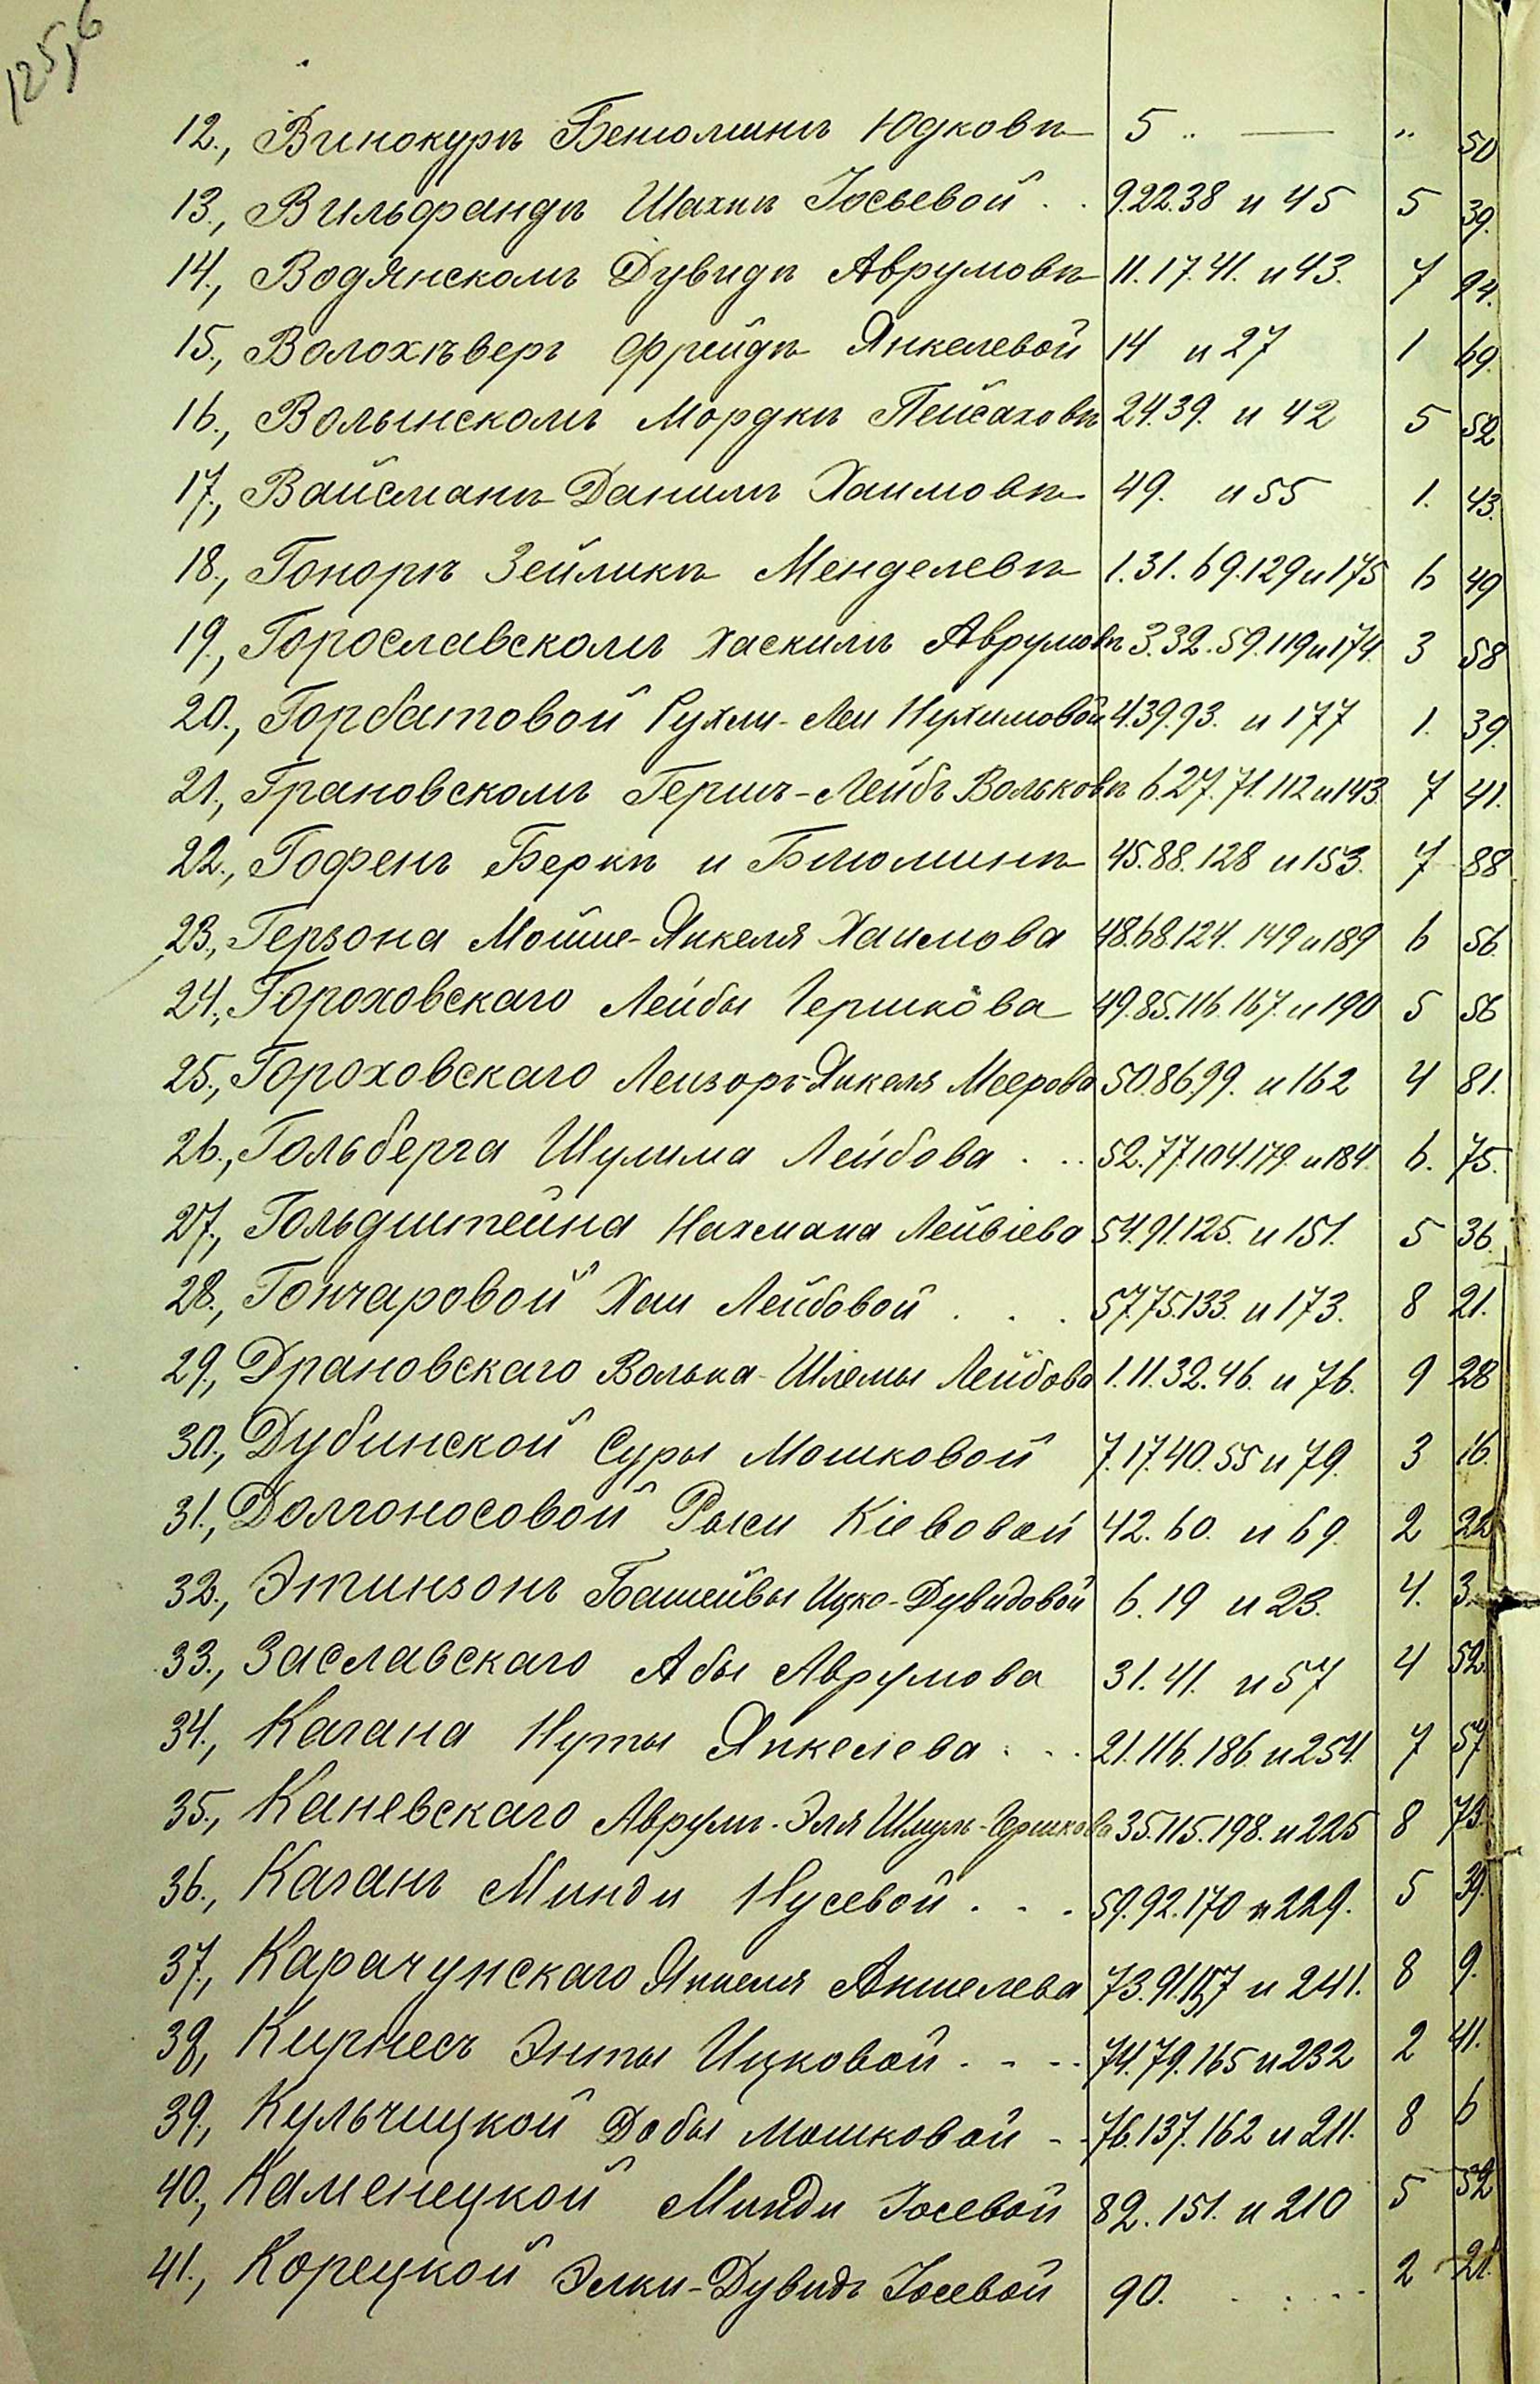 125,6
12., Винокурѣ Бенюминѣ Юдковѣ 5 „ — „ 50
13., Вильфандѣ Шахнѣ Іосьевой . . 9.22.38 и 45 5 39.
14., Водянскомъ Дувидѣ Аврумовѣ 11.17.41. и 43. 7 94.
15., Волохѣверъ Фрейдѣ Янкелевой 14 и 27 1 69.
16., Волынскомъ Мордкѣ Пейсаховѣ 24.39. и 42 5 52
17., Вайсманѣ Данилѣ Хаимовѣ 49. и 55 1. 43.
18., Гонорѣ Зейликѣ Менделевѣ 1.31.69.129 и 175 6 49
19., Горославскомъ Хаскилѣ Аврумовѣ 3.32.59.119 и 174. 3 58
20., Горбатовой Рухли-Леи Нухимовой 4.39.93. и 177 1. 39.
21., Грановскомъ Гершъ-Лейбѣ Вольковѣ 6.27.71.112 и 143 7 41.
22., Гофенъ Беркѣ и Бнюминѣ 45.88.128 и 153. 7 88
23., Герзона Мойше-Янкеля Хаимова 48.68.124.149 и 189 6 56.
24., Гороховскаго Лейбы Гершкова 49.85.116.167. и 190 5 56
25., Гороховскаго Лейзоръ-Янкеля Меерова 50.86.99. и 162 4 81.
26., Гольберга Шулима Лейбова . . . 52.77.104.179. и 184. 6. 75.
27., Гольдштейна Нахмана Лейвіева 54.91.125. и 151. 5 36.
28., Гончаровой Хаи Лейбовой . . . 57.75.133. и 173. 8 21.
29., Драновскаго Волька-Шлемы Лейбова 1.11.32.46. и 76. 9 28
30., Дубинской Суры Мошковой 7.17.40.55 и 79. 3 16.
31., Долгоносовой Рыси Кіевовой 42.60. и 69. 2 22
32., Этинзонъ Башейвы Ицко-Дувидовой 6.19 и 23. 4. 3.
33., Заславскаго Абы Аврумова 31.41. и 57 4 52.
34., Кагана Нуты Янкелева . . . 21.116.186. и 254. 7 57
35., Каневскаго Аврумъ-Эля Шмуль-Гершкова 35.115.198. и 225 8 73.
36., Каганъ Минди Нусевой . . . 59.92.170 и 229. 5 39.
37., Карачунскаго Янкеля Аншелева 73.91.157 и 241. 8 9.
38, Кирнесъ Энты Ицковой . . . . 74.79.165 и 232 2 41.
39., Кульчицкой Добы Мошковой - - 76.137.162 и 211. 8 6
40., Каменецкой Минди Іосевой 82.151. и 210 5 52
41., Корецкой Элки-Дувидъ Іосевой 90. . . . . 2 21.